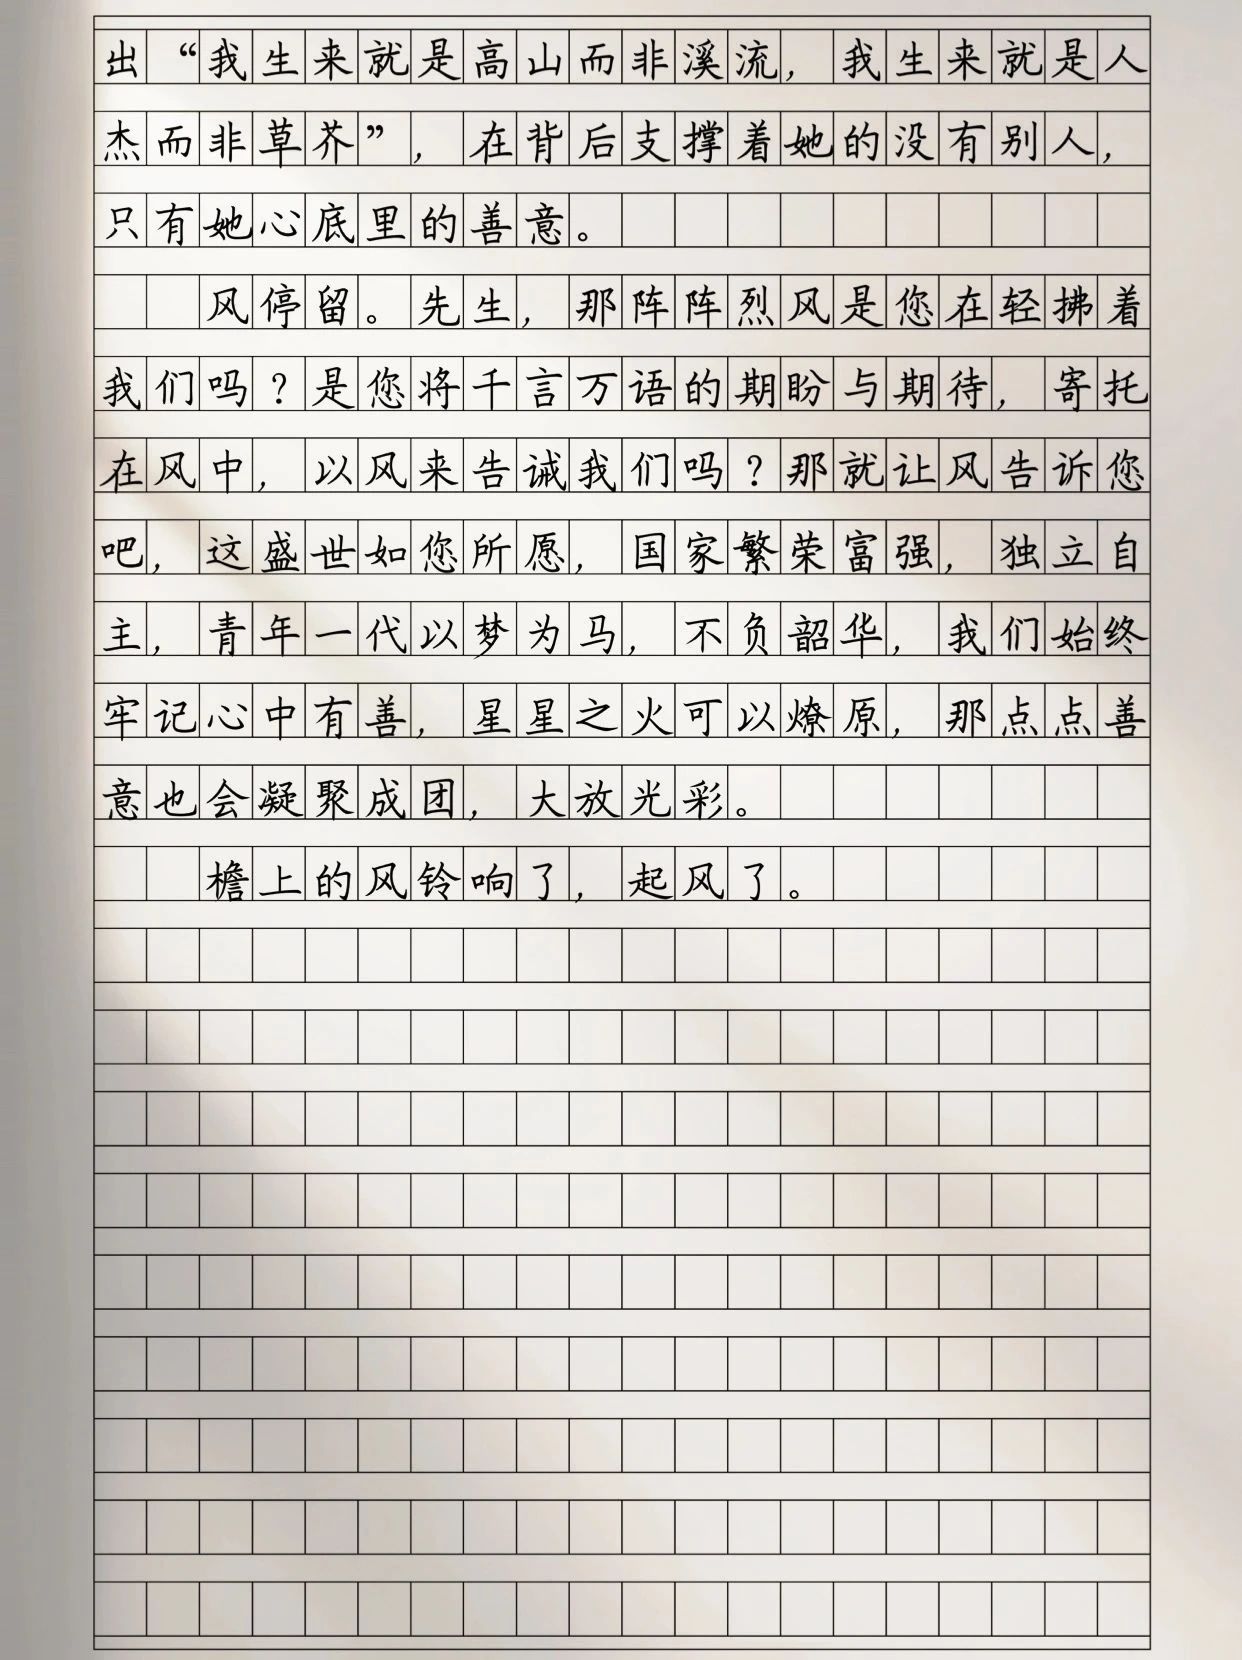 出“我生来就是高山而非溪流，我生来就是人
杰而非草芥”，在背后支撑着她的没有别人，
只有她心底里的善意。
风停留。先生，那阵阵烈风是您在轻拂着
我们吗？是您将千言万语的期盼与期待，寄托
在风中，以风来告诫我们吗？那就让风告诉您
吧，这盛世如您所愿，国家繁荣富强，独立自
主，青年一代以梦为马，不负韶华，我们始终
牢记心中有善，星星之火可以燎原，那点点善
意也会凝聚成团，大放光彩。
檐上的风铃响了，起风了。